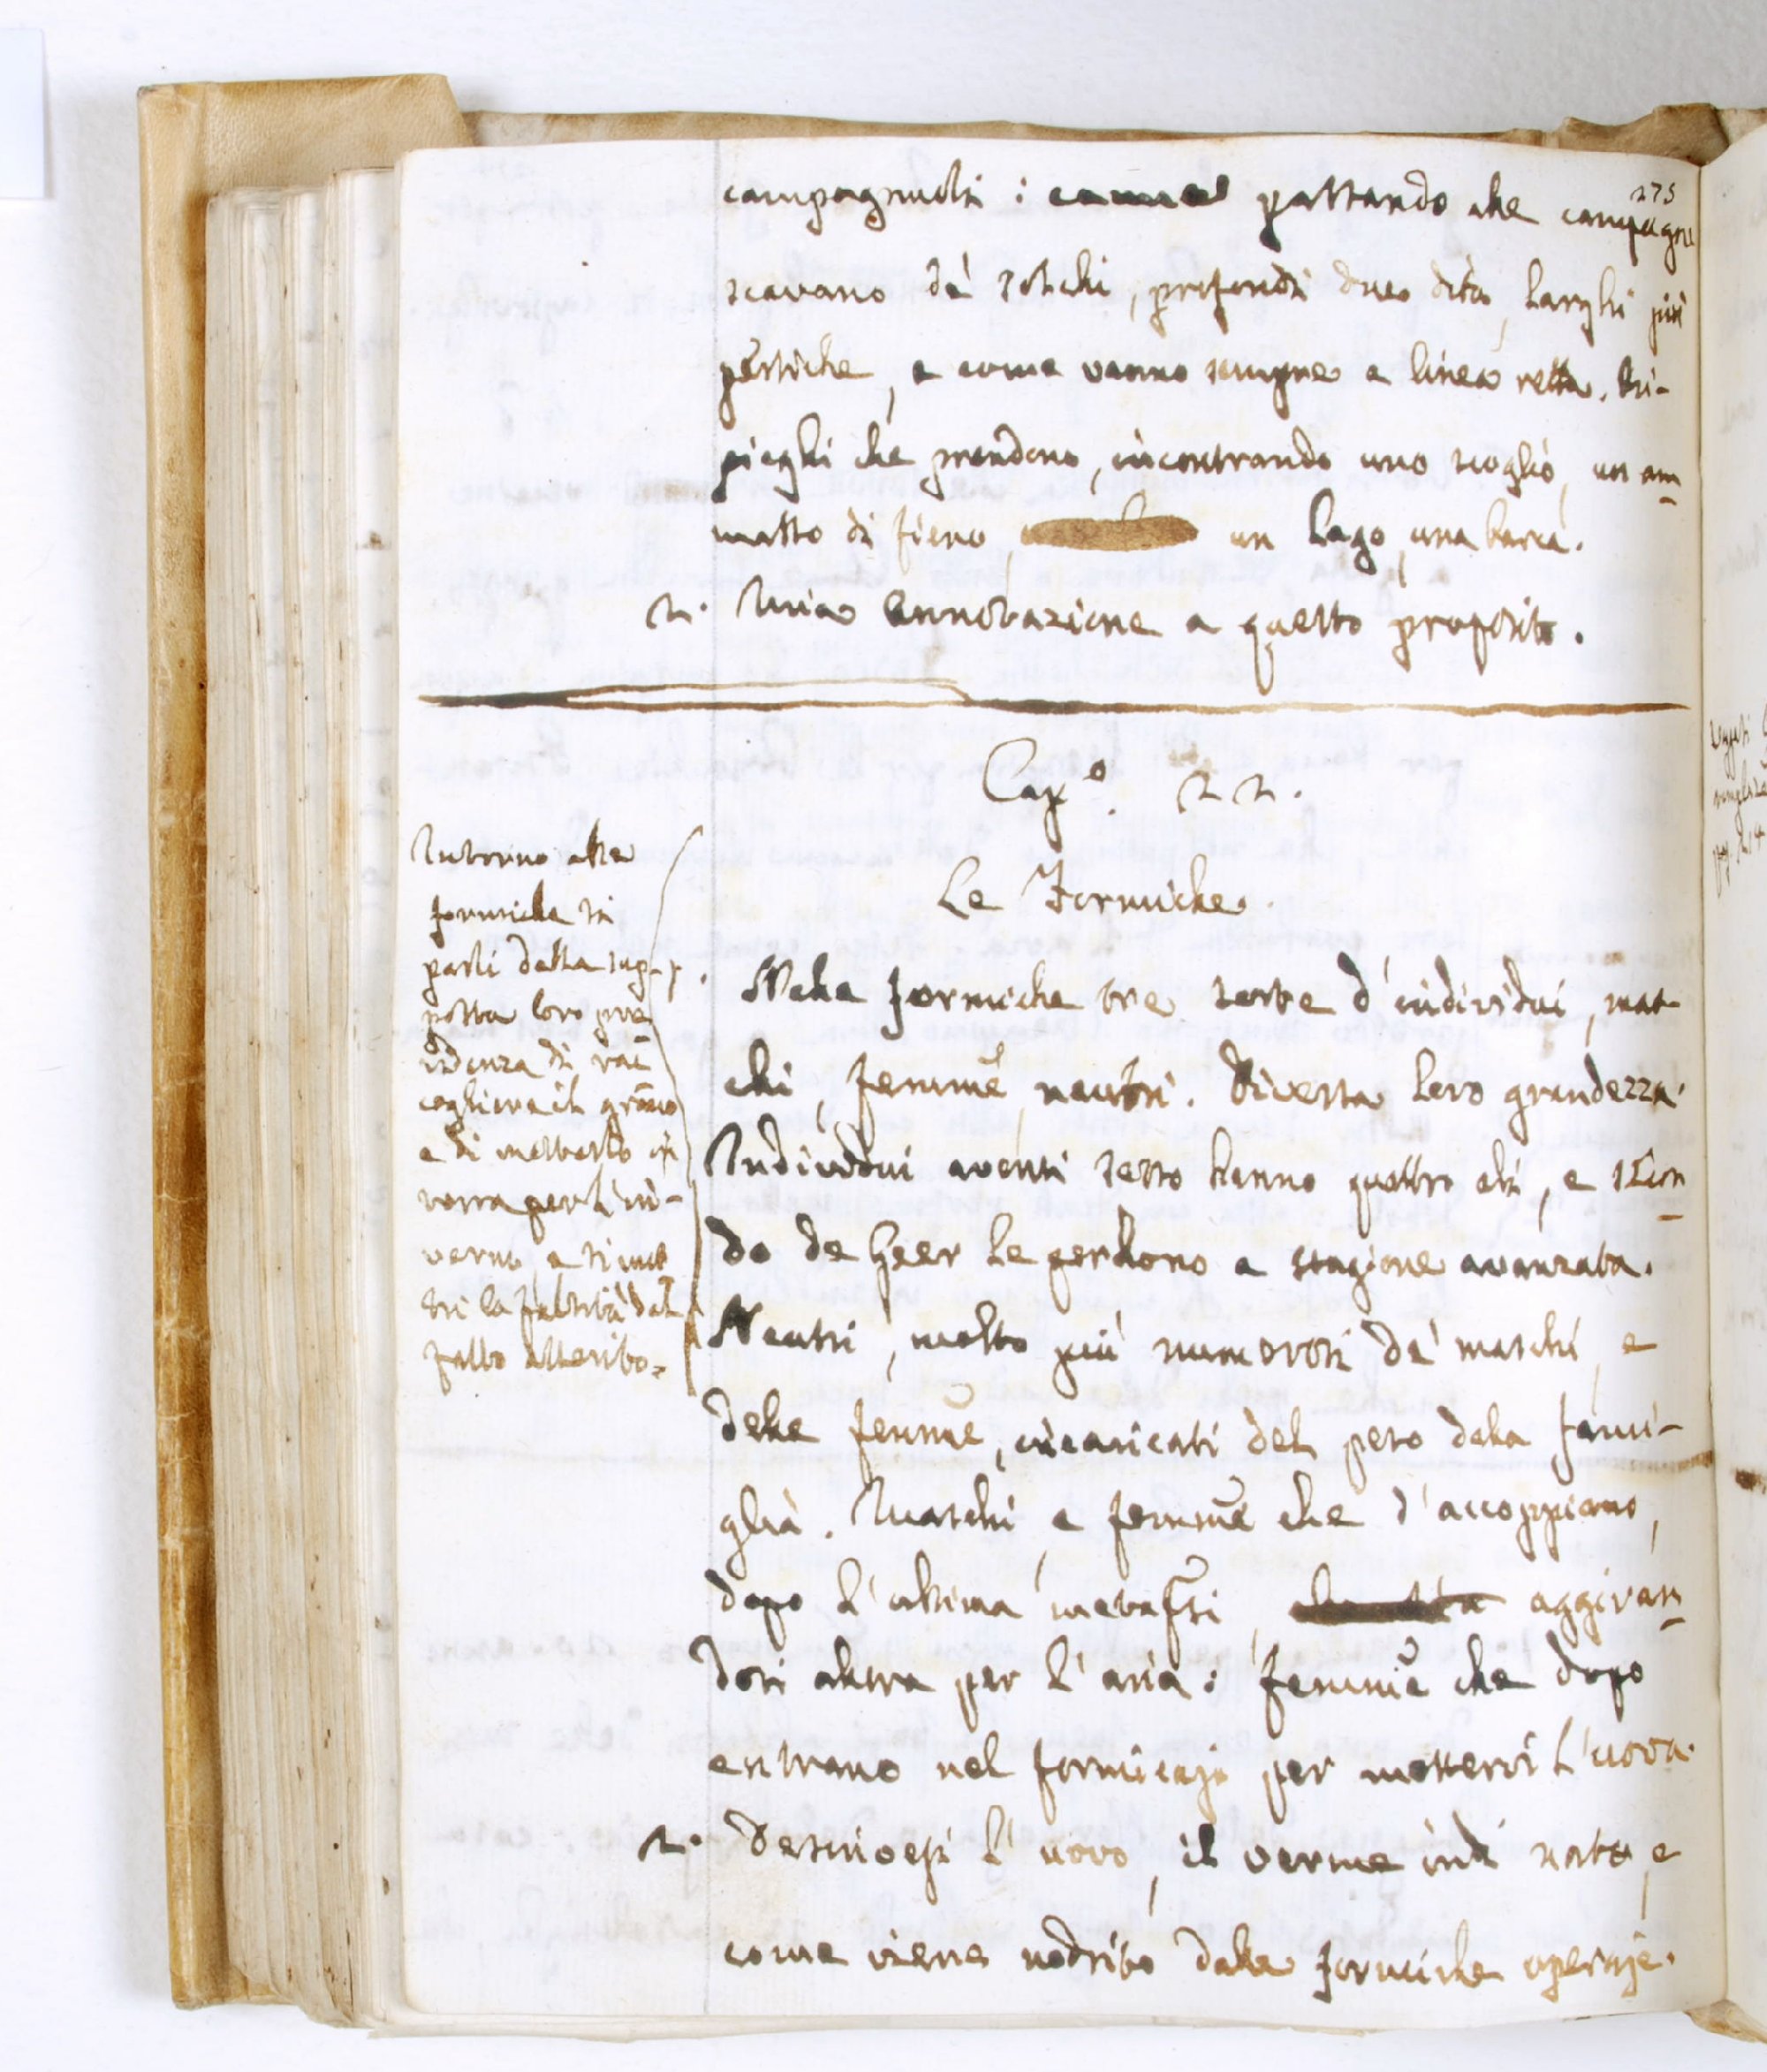 275
campagnuoli : passando che campagne
scavano de' solchi, profondi due dita, larghi più
pertiche, e come vanno sempre a linea retta. Ri-
pieghi che prendono, incontrando uno scoglio, un am
masso di fieno un lago, una barca.
2. Mia annotazione a questo proposito.
Cap.o 22.
Le Formiche.
Intorno alle
formiche si
parli della sup-
posta loro prov
videnza di rac
cogliere il grano
e di metterlo in
terra per l'in-
verno, e si mos
tri la falsità del
fatto asserito.
1. Nelle formiche tre sorte d'individui, mas
chi, femme, neutri. Diversa loro grandezza.
Individui aventi sesso hanno quattro ali, e secon
do de Geer le perdono a stagione avanzata.
Neutri, molto più numerosi de' maschi, e
delle femme, incaricati del peso della fami-
glia. Maschi, e femme che s'accoppiano,
dopo l'ultima metafsi aggiran
dosi allora per l'aria: femme che dopo
entrano nel formicajo per mettervi l'uova.
2. Descrivesi l'uovo, il verme indi nato, e
come viene nodrito dalle formiche operaje.